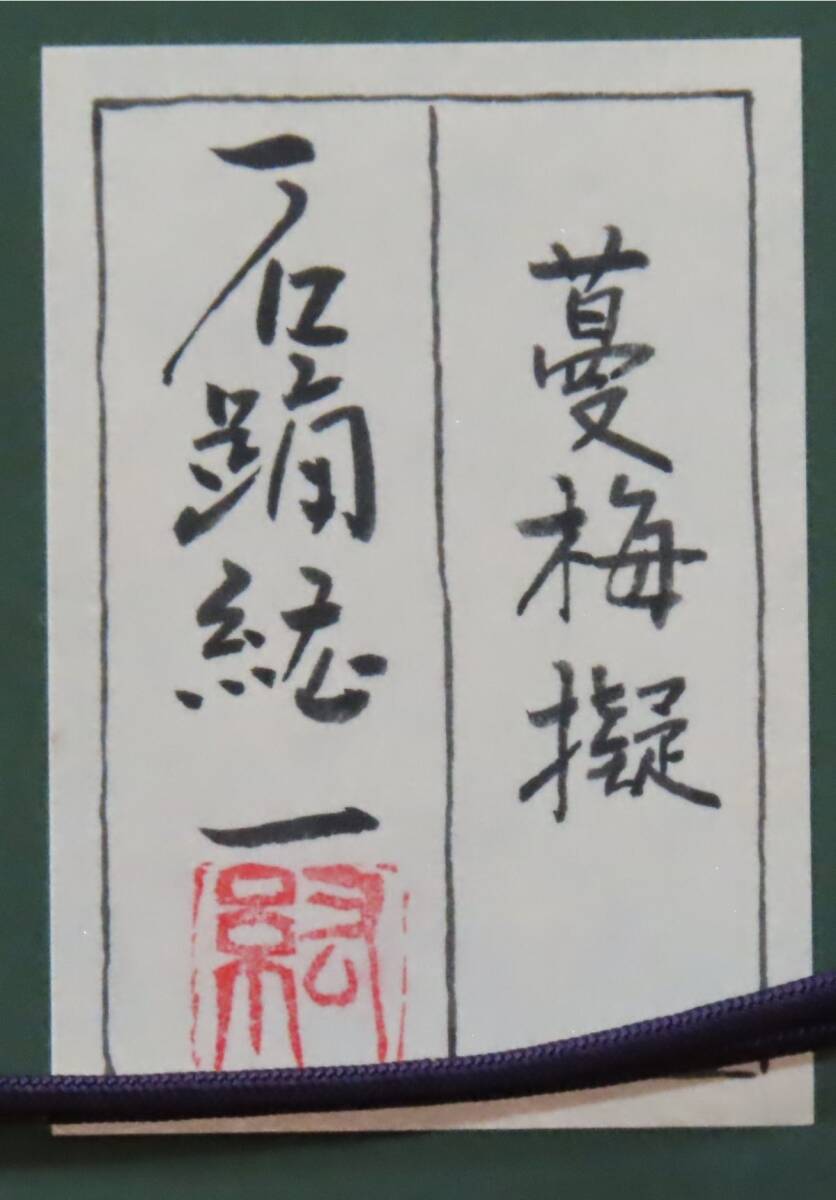 蔓梅擬
石踊紘一
紘